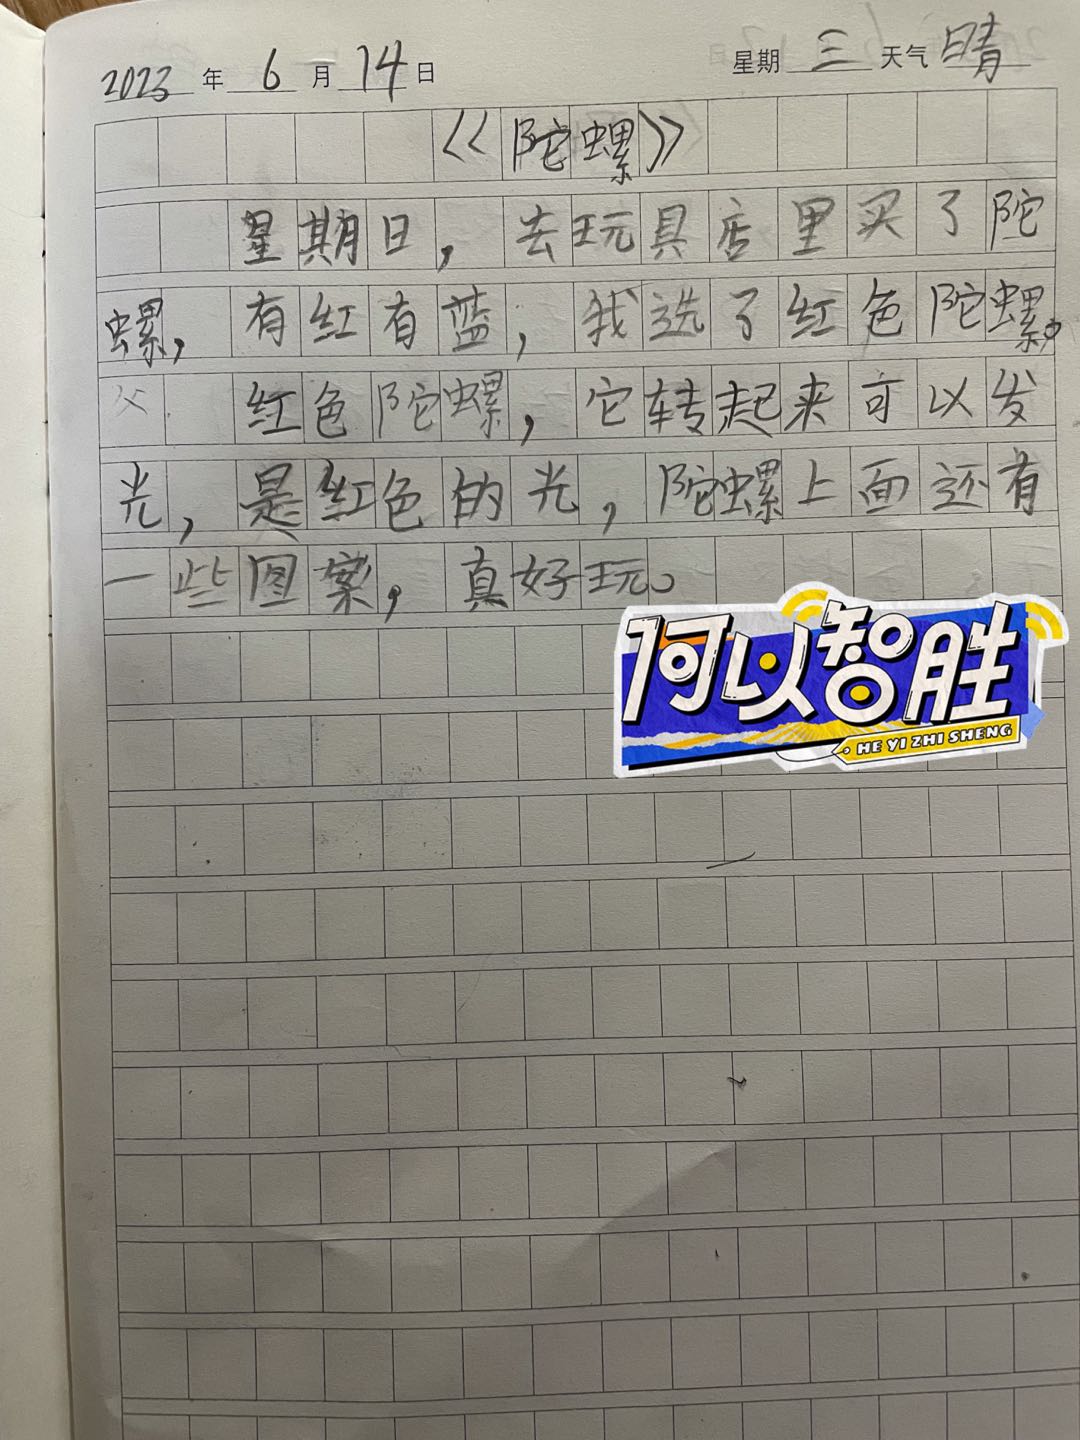 2023 年 6 月 14 日 星期 三 天气 晴
《陀螺》
星期日，去玩具店里买了陀
螺，有红有蓝，我选了红色陀螺。
红色陀螺，它转起来可以发
光，是红色的光，陀螺上面还有
一些图案，真好玩。
何以智胜
HE YI ZHI SHENG